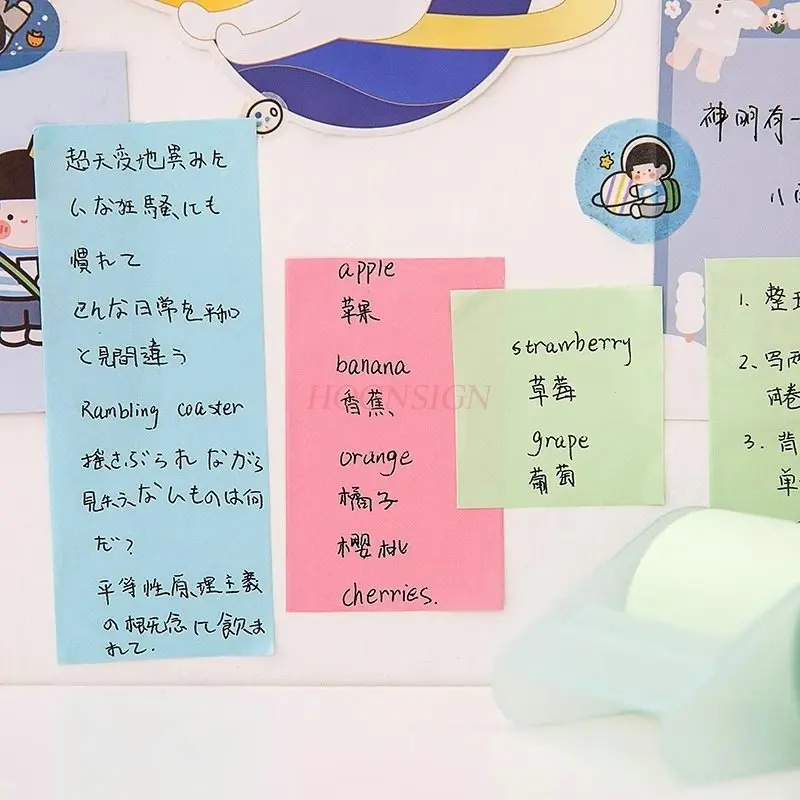 超天変地異みた
いな狂騒にも
慣れて
こんな日常を平和
と見間違う
Rambling coaster
揺さぶられながら
見失えないものは何
だ？
平等性原理主義
の概念に飲ま
れて.
apple
苹果
banana
香蕉、
orange
橘子
樱桃
cherries.
strawberry
草莓
grape
葡萄
神明有一
八
1. 整
2. 写两
卷
3. 背
单
HOONSIGN